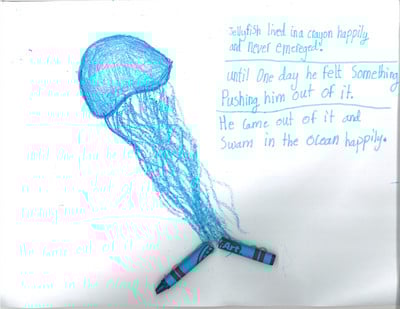 Jellyfish lived in a crayon happily
and never emereged!
until One day he felt Something
Pushing him out of it.
He came out of it and
Swam in the ocean happily.
Art